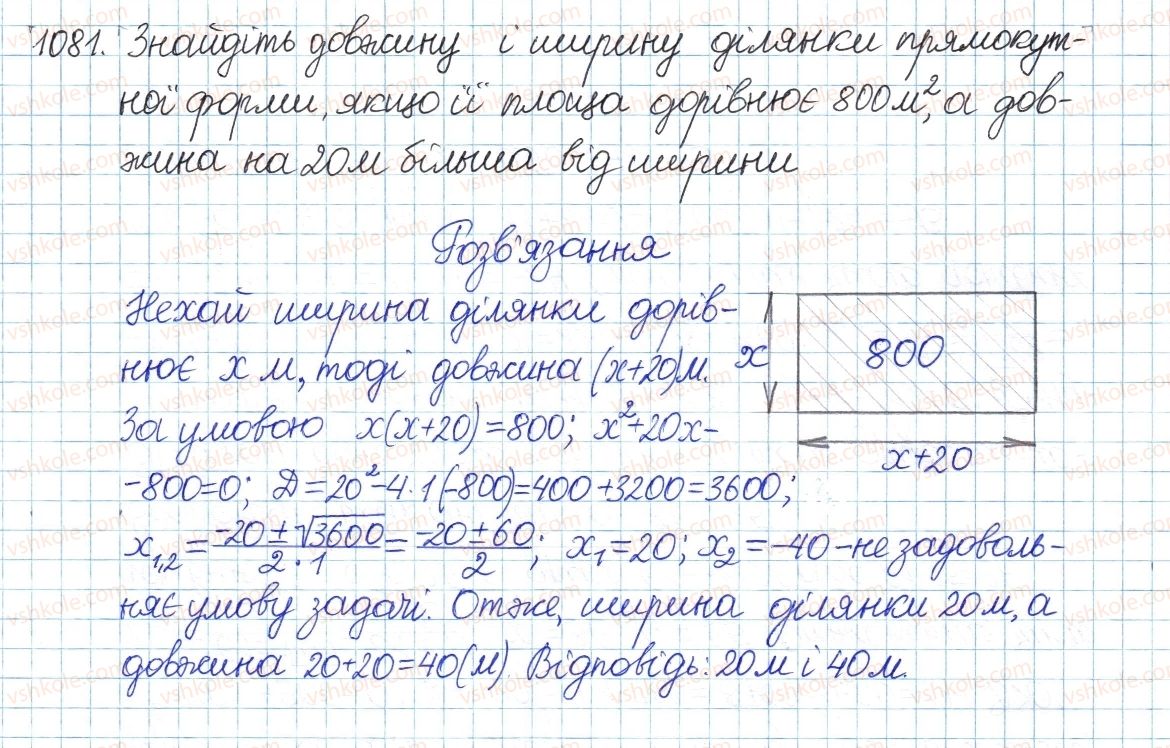 1081. Знайдіть довжину і ширину ділянки прямокут-
ної форми, якщо її площа дорівнює 800м², а дов-
жина на 20м більша від ширини
Розв'язання
Нехай ширина ділянки дорів-
нює x м, тоді довжина (x+20)м.
За умовою x(x+20)=800; x²+20x-
-800=0; Д=20²-4·1(-800)=400+3200=3600;
x₁,₂ = (-20±√3600)/(2·1) = (-20±60)/2; x₁=20; x₂=-40-не задоволь-
няє умову задачі. Отже, ширина ділянки 20м, а
довжина 20+20=40(м). Відповідь: 20м і 40м.
x
800
x+20
vshkole.com